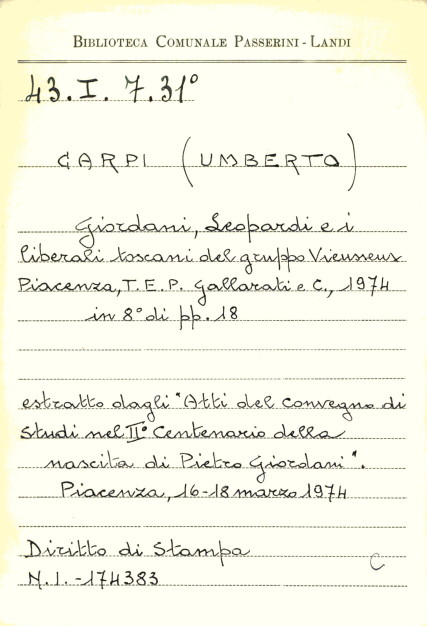 BIBLIOTECA COMUNALE PASSERINI - LANDI
43. I. 7. 31°
CARPI (UMBERTO)
Giordani, Leopardi e i
liberali toscani del gruppo Vieusseux
Piacenza, T. E. P. Gallarati e C., 1974
in 8° di pp. 18
estratto dagli "Atti del convegno di
studi nel II° Centenario della
nascita di Pietro Giordani".
Piacenza, 16-18 marzo 1974
Diritto di Stampa
C
N. I. - 174383